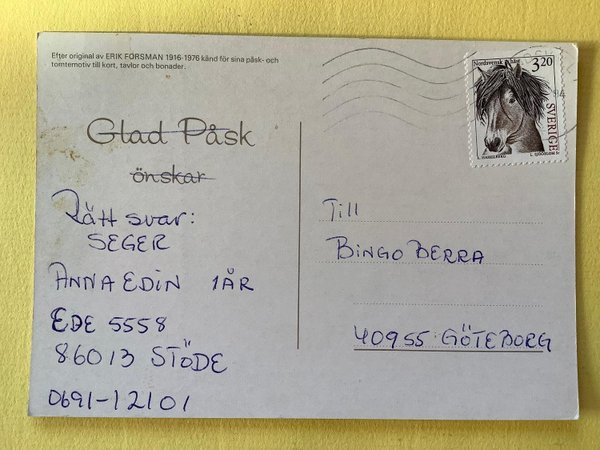 Efter original av ERIK FORSMAN 1916-1976 känd för sina påsk- och
tomtemotiv till kort, tavlor och bonader.
Nordsvensk
3.20
SVERIGE
Glad Påsk
önskar
Rätt svar:
SEGER
ANNA EDIN 1ÅR
EDE 5558
86013 STÖDE
0691-12101
Till
BINGO BERRA
40955 GÖTEBORG